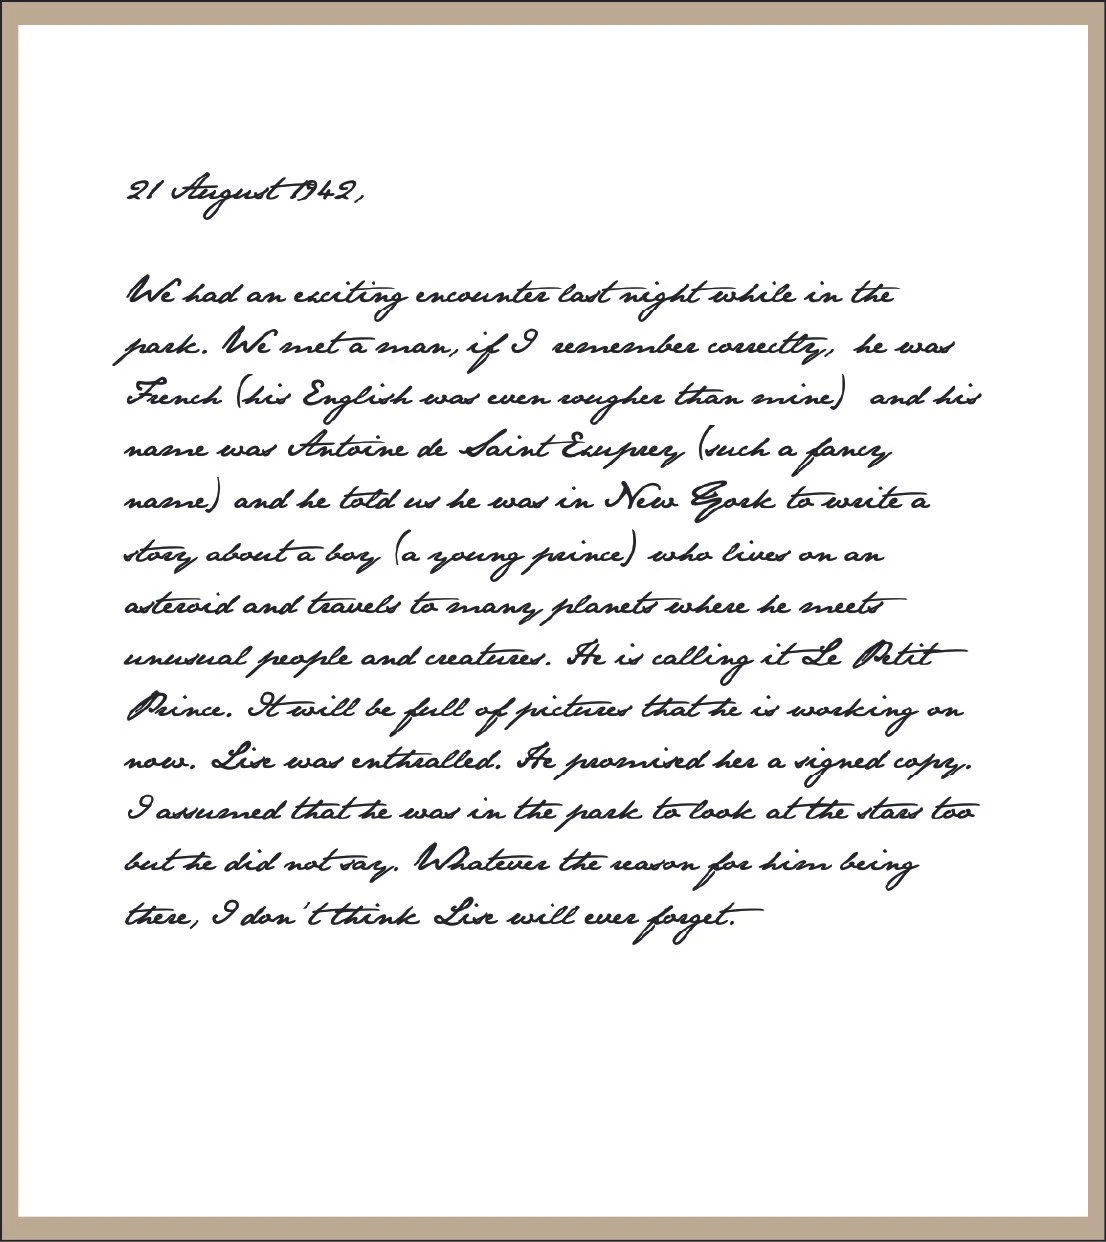 21 August 1942,
We had an exciting encounter last night while in the
park. We met a man, if I remember correctly, he was
French (his English was even rougher than mine) and his
name was Antoine de Saint Exuprey (such a fancy
name) and he told us he was in New York to write a
story about a boy (a young prince) who lives on an
asteroid and travels to many planets where he meets
unusual people and creatures. He is calling it Le Petit
Prince. It will be full of pictures that he is working on
now. Lise was enthralled. He promised her a signed copy.
I assumed that he was in the park to look at the stars too
but he did not say. Whatever the reason for him being
there, I don't think Lise will ever forget.